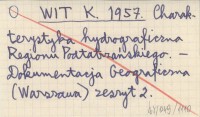 WIT K. 1957. Charak-
terystyka hydrograficzna
Regionu Podtatrzańskiego. —
Dokumentacja Geograficzna
(Warszawa) zeszyt 2.